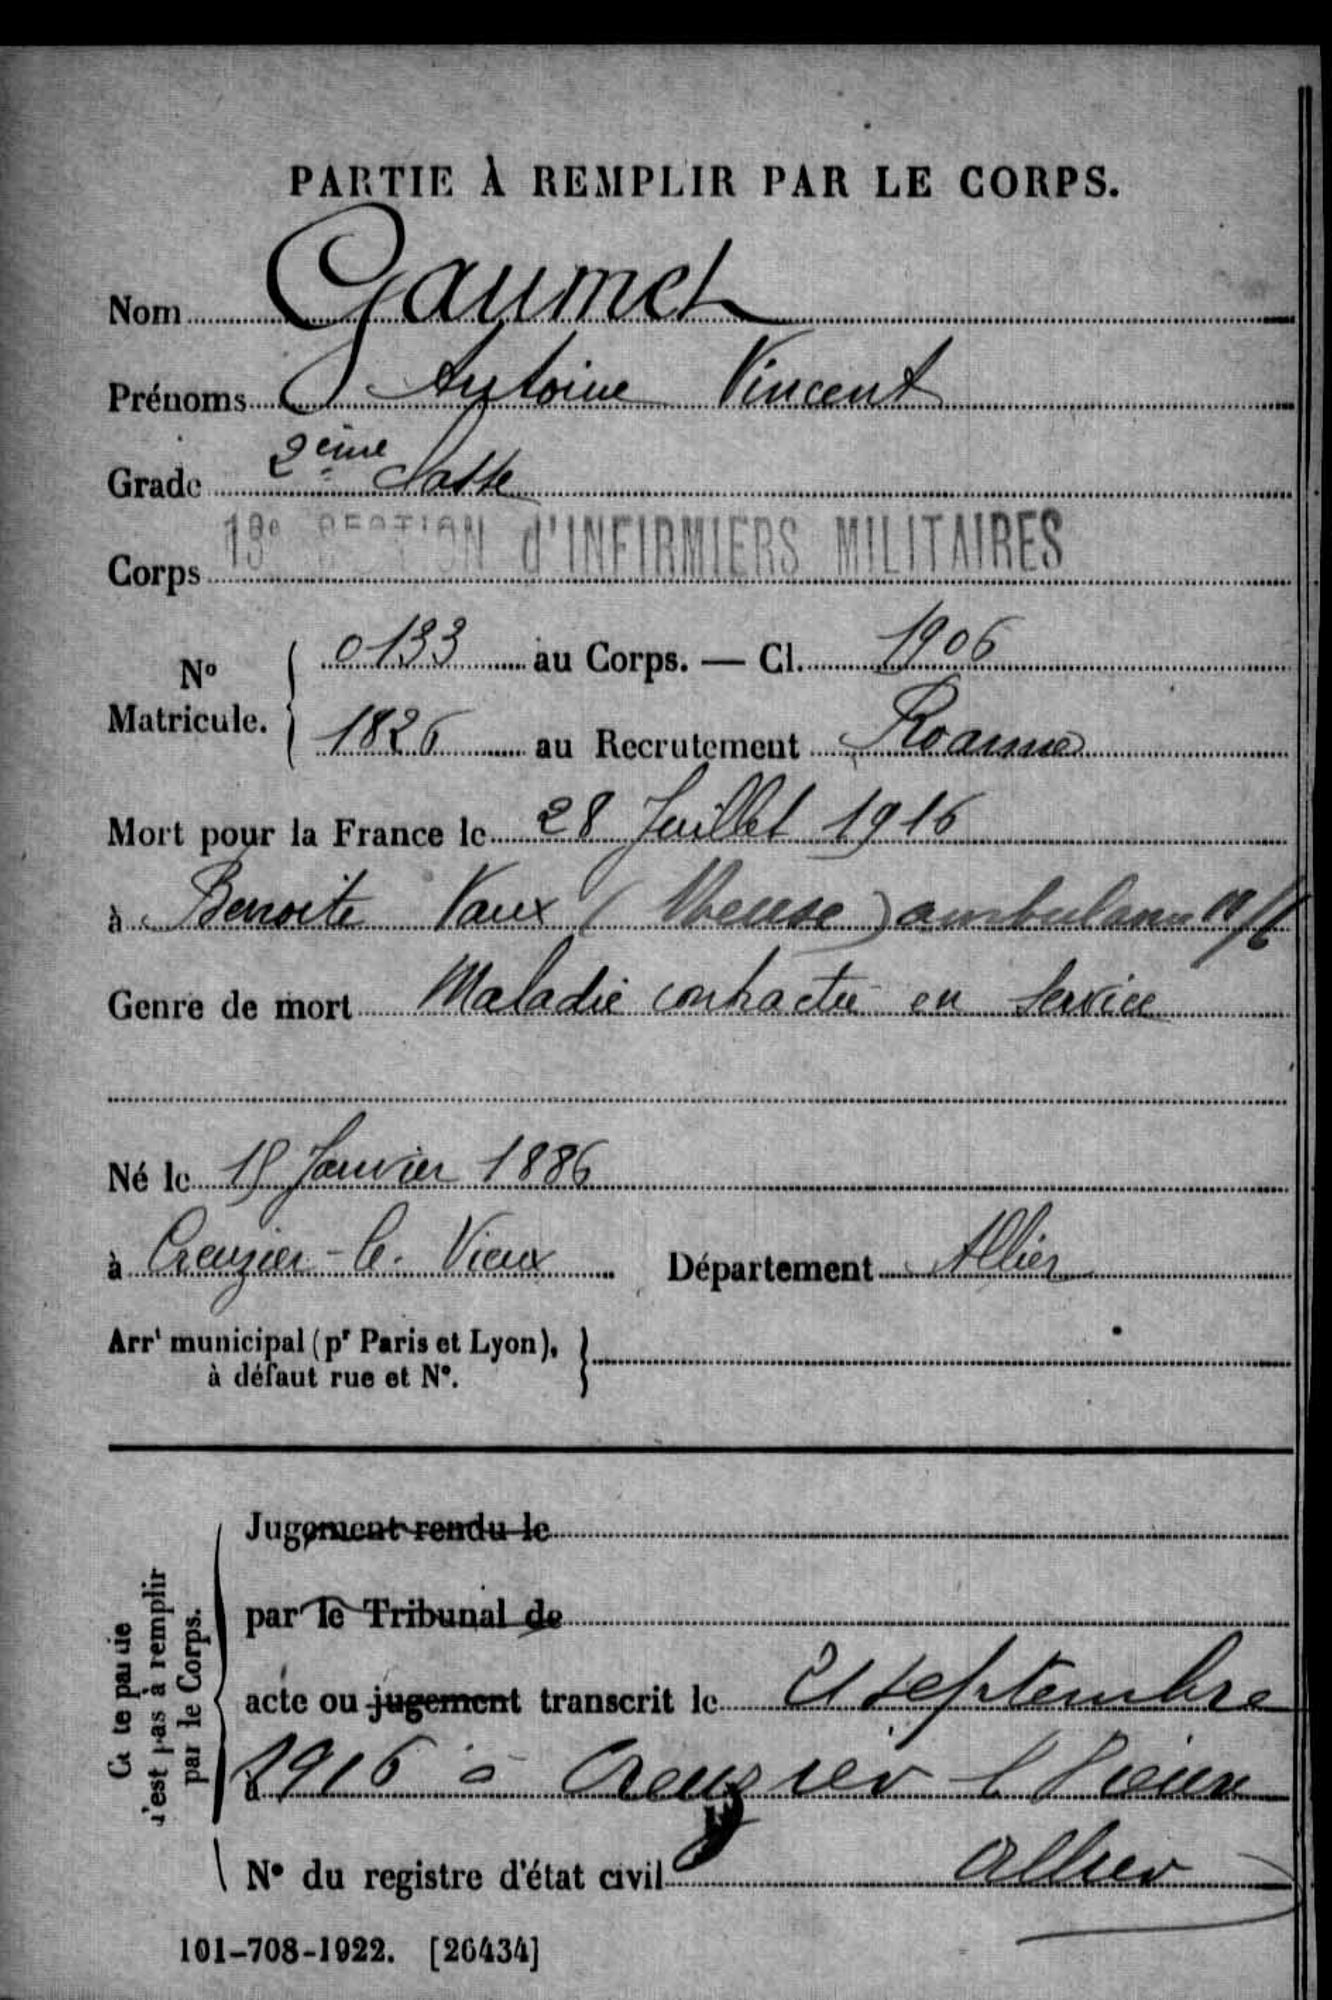 PARTIE À REMPLIR PAR LE CORPS.
Nom Gaumet
Prénoms Antoine Vincent
Grade 2ème classe
Corps 13e SECTION d'INFIRMIERS MILITAIRES
No Matricule. { 0133 au Corps. — Cl. 1906
1826 au Recrutement Roanne
Mort pour la France le 28 Juillet 1916
à Benoite Vaux (Meuse) ambulance
Genre de mort Maladie contractée en Service
Né le 15 Janvier 1886
à Creuzier-le-Vieux Département Allier
Arrt municipal (pr Paris et Lyon),
à défaut rue et N°.
Jugement rendu le
par le Tribunal de
acte ou jugement transcrit le 21 septembre
à 1916 à Creuzier l Vieux
N° du registre d'état civil Allier
Cette partie
n'est pas à remplir
par le Corps.
101-708-1922. [26434]